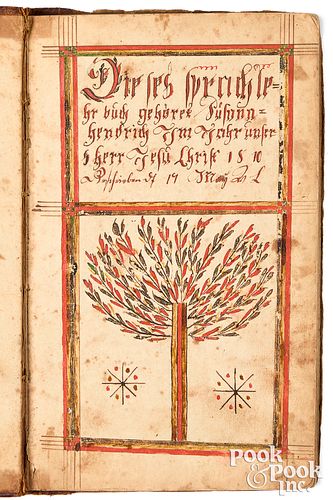 Dieses sprachle=
hr buch gehöret
hendrich Im Jahr unser
s herr Jesu Christ 1810
Geschrieben d 19 May
POOK
& POOK
INC.